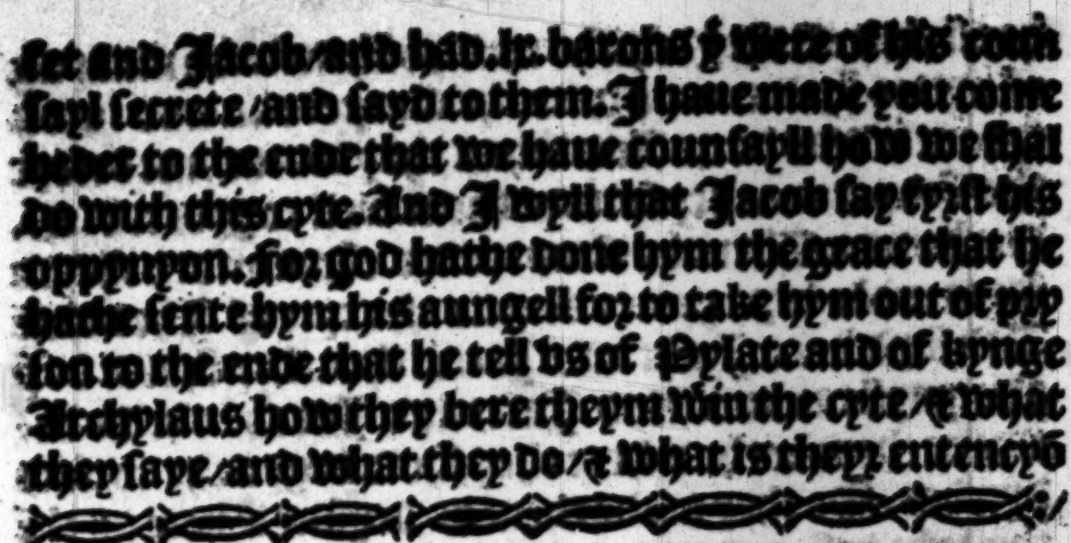 set and Jacob / and had .lx. barons yͭ were of his coun
sayl secrete / and sayd to them. I haue made you come
heder to the ende that we haue counsayll how we shal
do with this cyte. And I wyll that Jacob say fyrst his
oppynyon. For god hathe done hym the grace that he
hathe sente hym his aungell for to take hym out of pry
son to the ende that he tell vs of Pylate and of kynge
Archylaus how they bere theym win the cyte / ⁊ what
they saye / and what they do / ⁊ what is theyr entencyō